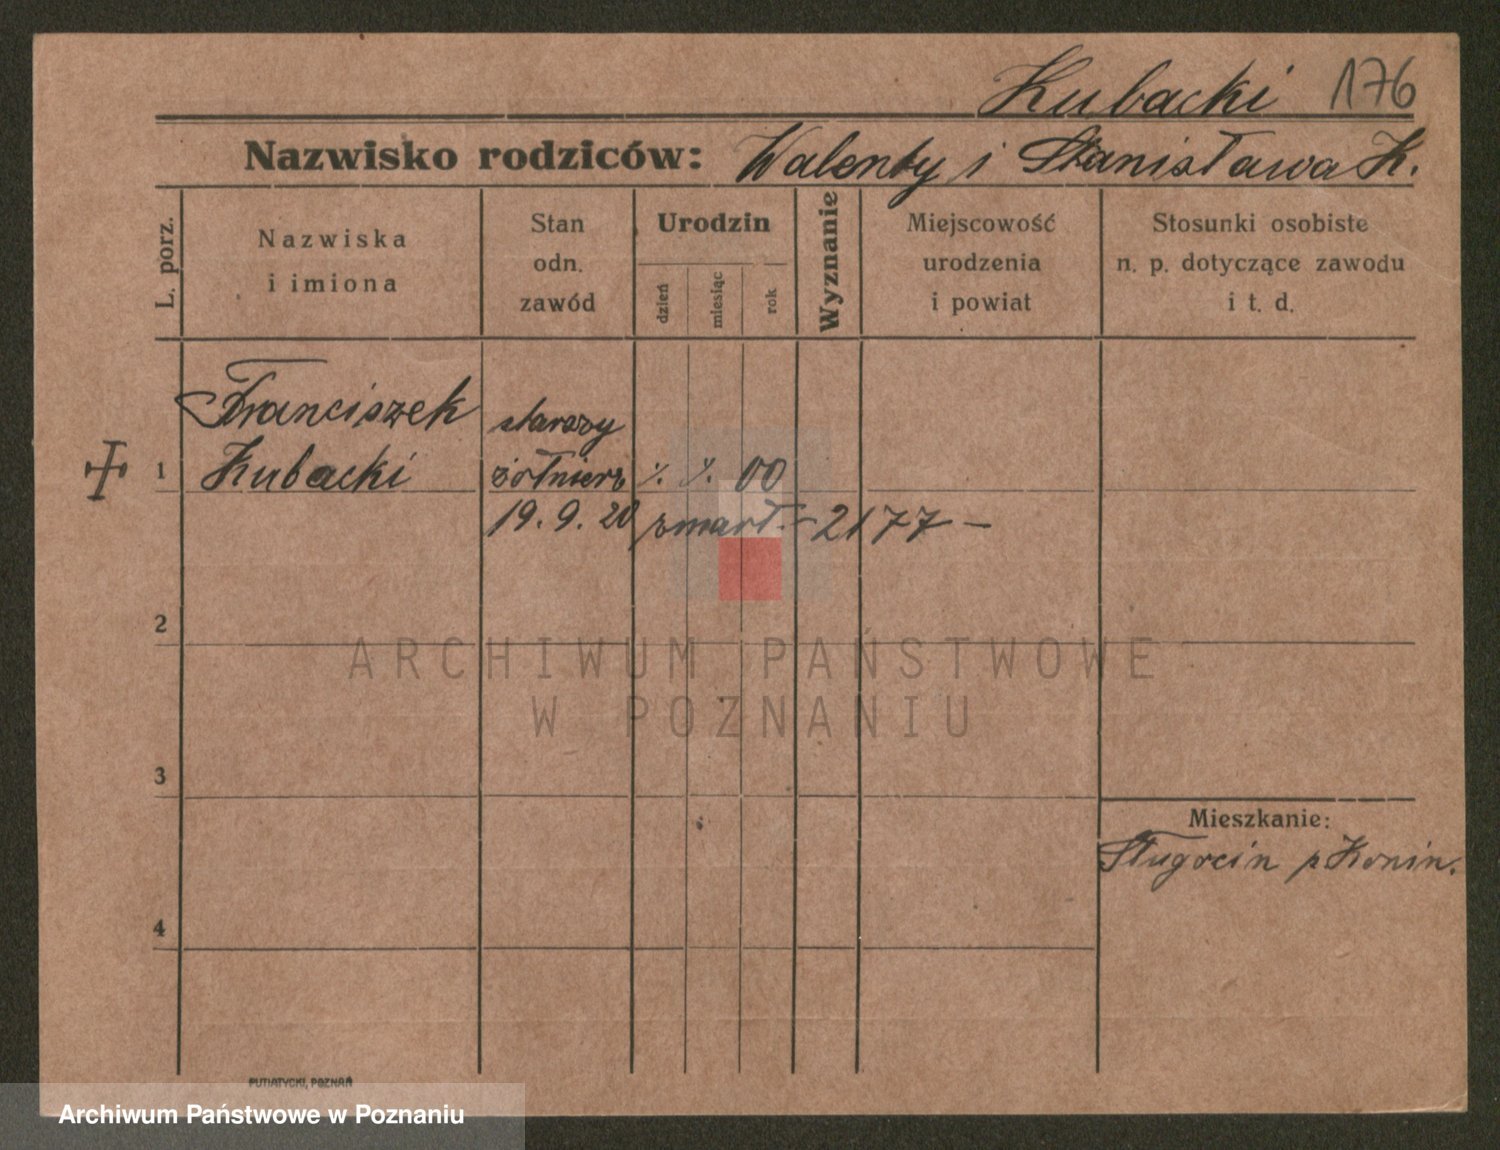 Kubacki 176
Nazwisko rodziców: Walenty i Stanisława K.
L. porz.
Nazwiska
i imiona
Stan
odn.
zawód
Urodzin
dzień
miesiąc
rok
Wyznanie
Miejscowość
urodzenia
i powiat
Stosunki osobiste
n. p. dotyczące zawodu
i t. d.
1
Franciszek
Kubacki
starszy
żołnierz
% %. 00
19. 9. 20 zmarł. - 2177 -
2
3
4
Mieszkanie:
Sługocin p Konin.
PUTIATYCKI, POZNAŃ
ARCHIWUM PAŃSTWOWE
W POZNANIU
Archiwum Państwowe w Poznaniu